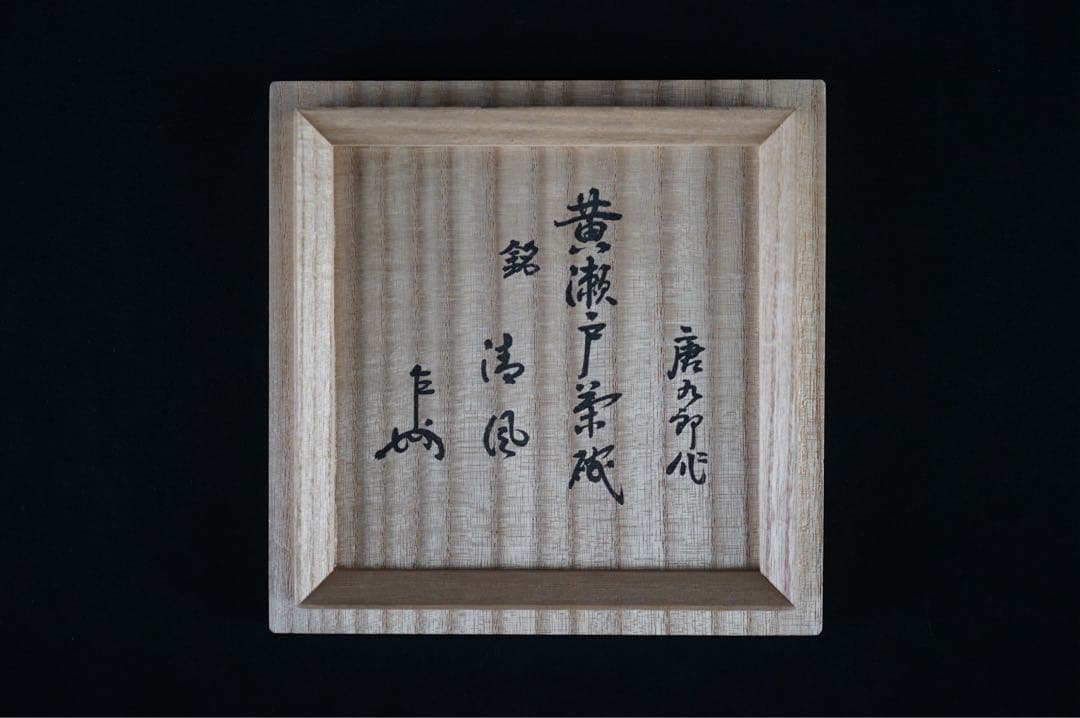 唐九郎作
黄瀬戸茶碗
銘 清風